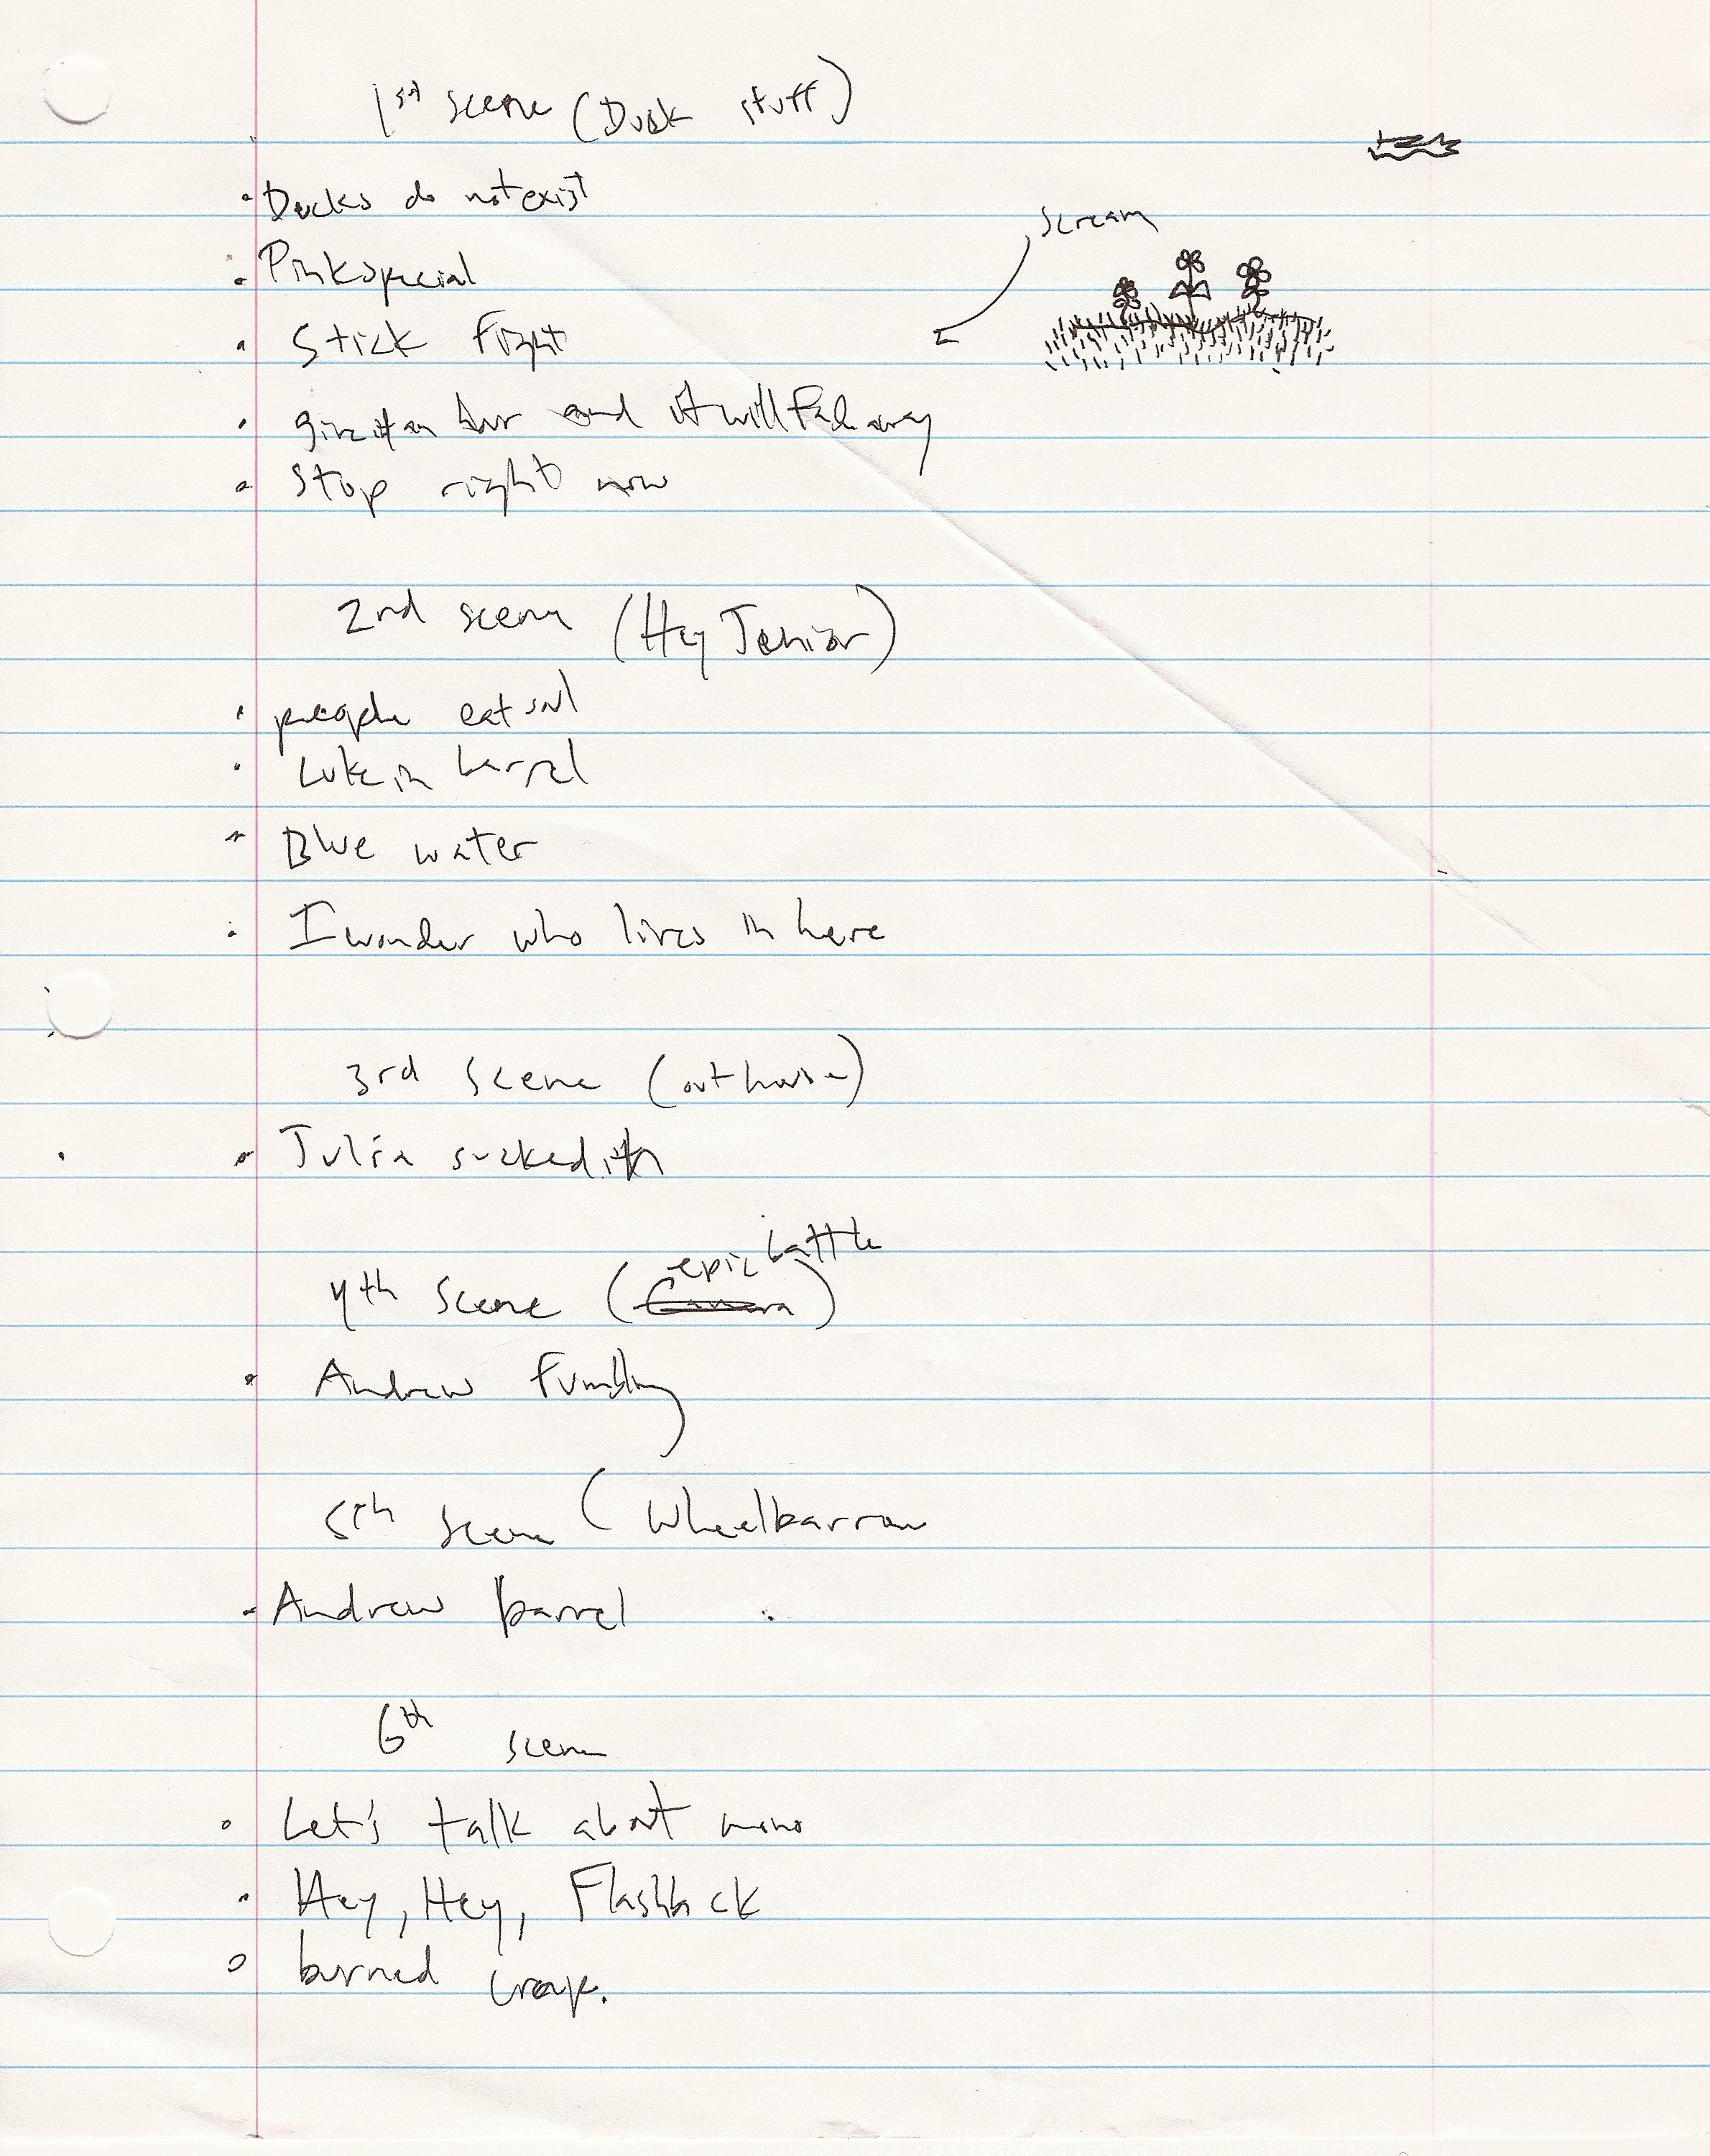 1st scene (Duck stuff)
• Ducks do not exist
scream
• Pink special
• Stick fight
• give it an hour and it will fade away
• Stop right now
2nd scene (Hey Junior)
• people eat
• Luke in barrel
• Blue water
• I wonder who lives in here
3rd scene (outhouse)
• Julia sucked in
epic battle
4th scene ( )
• Andrew fumbling
5th scene ( Wheelbarrow
• Andrew barrel
6th scene
• Let's talk about
• Hey, Hey, Flashback
• burned crap.